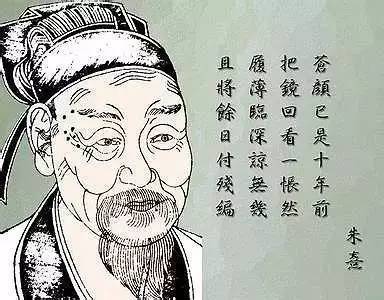 蒼顏已是十年前
把鏡回看一悵然
履薄臨深諒無幾
且將餘日付殘編
朱熹